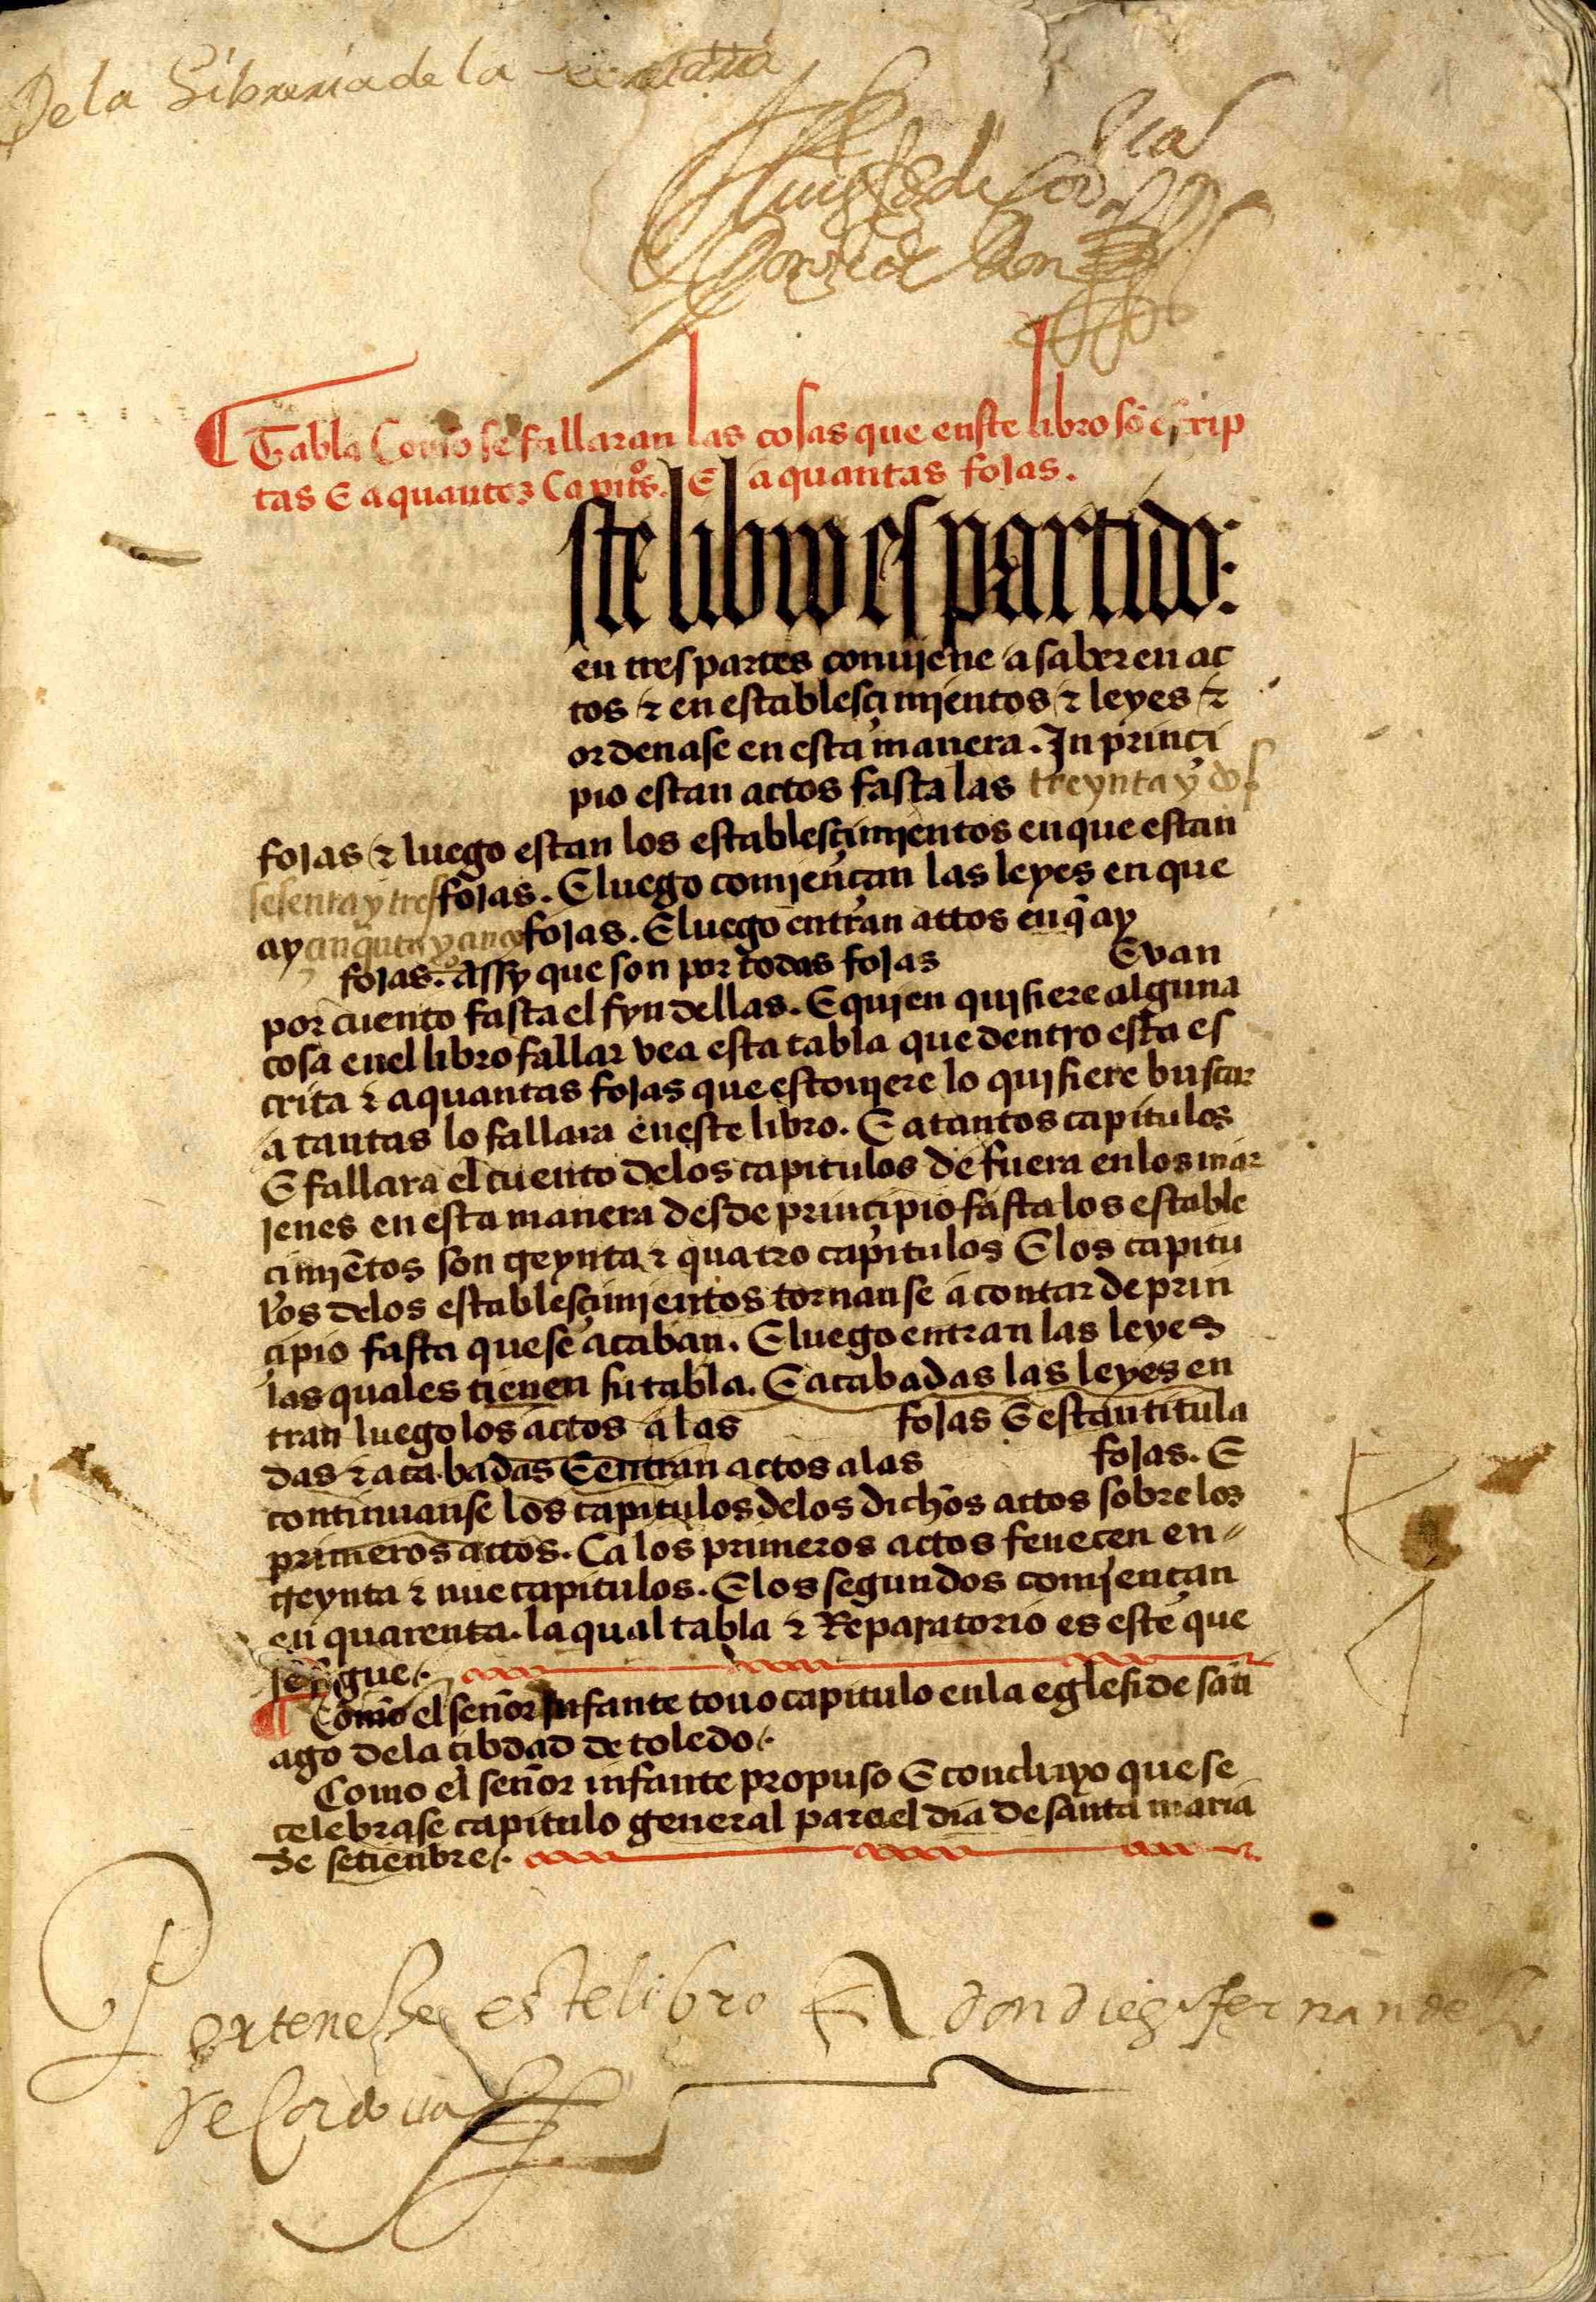 De la Libreria de la
Tabla Como se fallaran las cosas que enste libro sō escrip
tas E a quantos Capitos. E a quantas fojas.
ste libro es partido:
en tres partes conuiene a saber en ac
tos & en establesçimientos & leyes &
ordenase en esta manera. In prinçi
pio estan actos fasta las treynta y dos
fojas & luego estan los establesçimientos en que estan
sesenta y tres fojas. E luego comiençan las leyes en que
ay çinquēta y çinco fojas. E luego entran actos en q̄ ay
fojas. Assy que son por todas fojas E van
por cuento fasta el fyn dellas. E quien quisiere alguna
cosa enel libro fallar vea esta tabla que dentro esta es
crita & a quantas fojas que estouiere lo quisiere buscar
a tantas lo fallara eneste libro. E a tantos capitulos
E fallara el cuento delos capitulos de fuera enlos mar
jenes en esta manera desde prinçipio fasta los estable
çimiētos son treynta & quatro capitulos E los capitu
los delos establesçimientos tornanse a contar de prin
çipio fasta que se acaban. E luego entran las leyes
las quales tienen su tabla. E acabadas las leyes en
tran luego los actos a las fojas E estan titula
das & acabadas E entran actos a las fojas. E
continuanse los capitulos delos dichos actos sobre los
primeros actos. Ca los primeros actos feneçen en
treynta & nue capitulos. E los segundos comiençan
en quarenta. la qual tabla & Reparatorio es este que
se sigue.
Como el señor Infante touo capitulo enla eglesi de santi
ago dela cibdad de toledo.
Como el señor infante propuso E concluyo que se
celebrase capitulo general para el dia de santa maria
de setienbre.
Pertenesçe este libro A don diego fernandez
de Cordoua